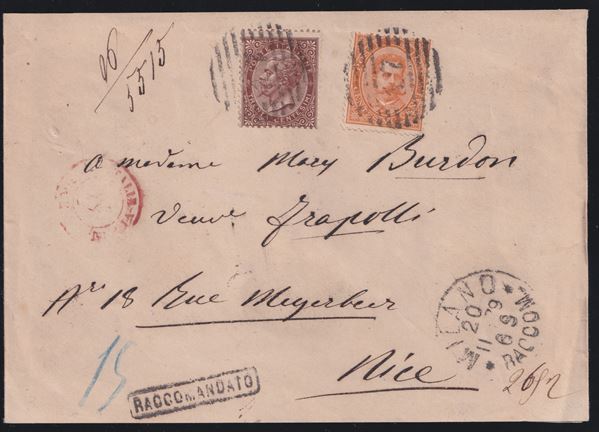 06/5515
A madame Mary Burdon
Veuve Frapolli
18 Rue Meyerbeer
Nice
MILANO
20
11 79
6 S
RACCOM
15
RACCOMANDATO